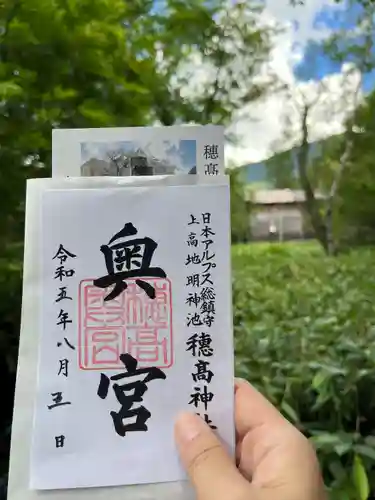 日本アルプス総鎮守
上高地明神池
穂高神
奥宮
令和五年八月五日
穂高